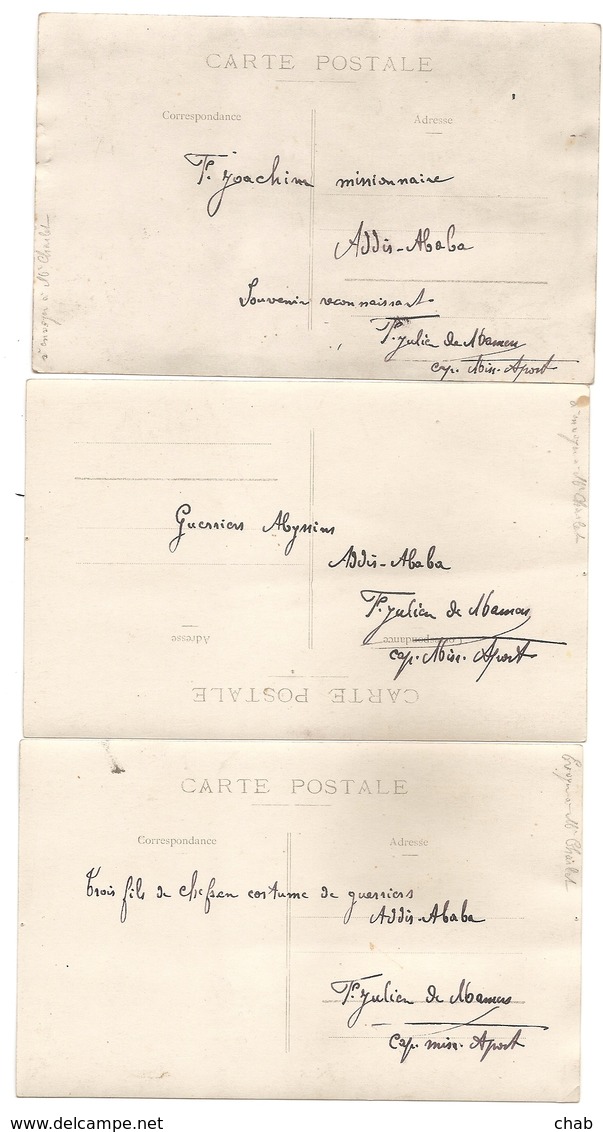 CARTE POSTALE
Correspondance
Adresse
P. Joachim missionnaire
Addis-Ababa
Souvenir reconnaissant
P. Julien de Mamers
cap. Miss. Apost.
à envoyer à Mr Charlet
Guerriers Abyssins
Addis-Ababa
P. Julien de Mamers
cap. Miss. Apost
Adresse
Correspondance
CARTE POSTALE
Mr Charlet
CARTE POSTALE
Correspondance
Adresse
Trois fils de chefs en costume de guerriers
Addis-Ababa
P. Julien de Mamers
Cap. miss. Apost
Mr Charlet
chab